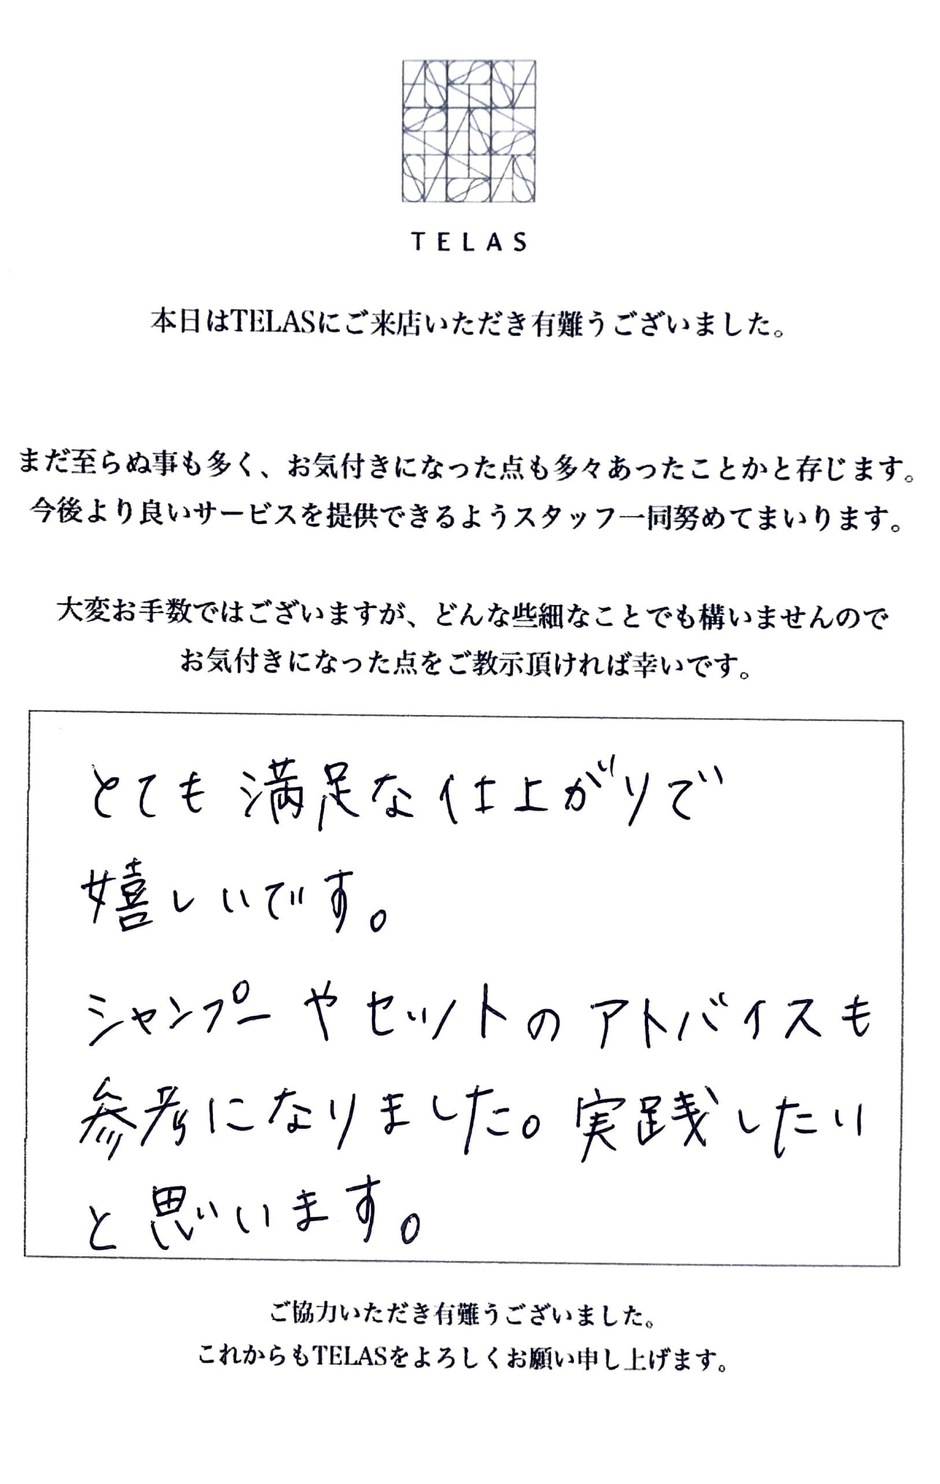 TELAS
本日はTELASにご来店いただき有難うございました。
まだ至らぬ事も多く、お気付きになった点も多々あったことかと存じます。
今後より良いサービスを提供できるようスタッフ一同努めてまいります。
大変お手数ではございますが、どんな些細なことでも構いませんので
お気付きになった点をご教示頂ければ幸いです。
とても満足な仕上がりで
嬉しいです。
シャンプーやセットのアトバイスも
参考になりました。実践したい
と思います。
ご協力いただき有難うございました。
これからもTELASをよろしくお願い申し上げます。